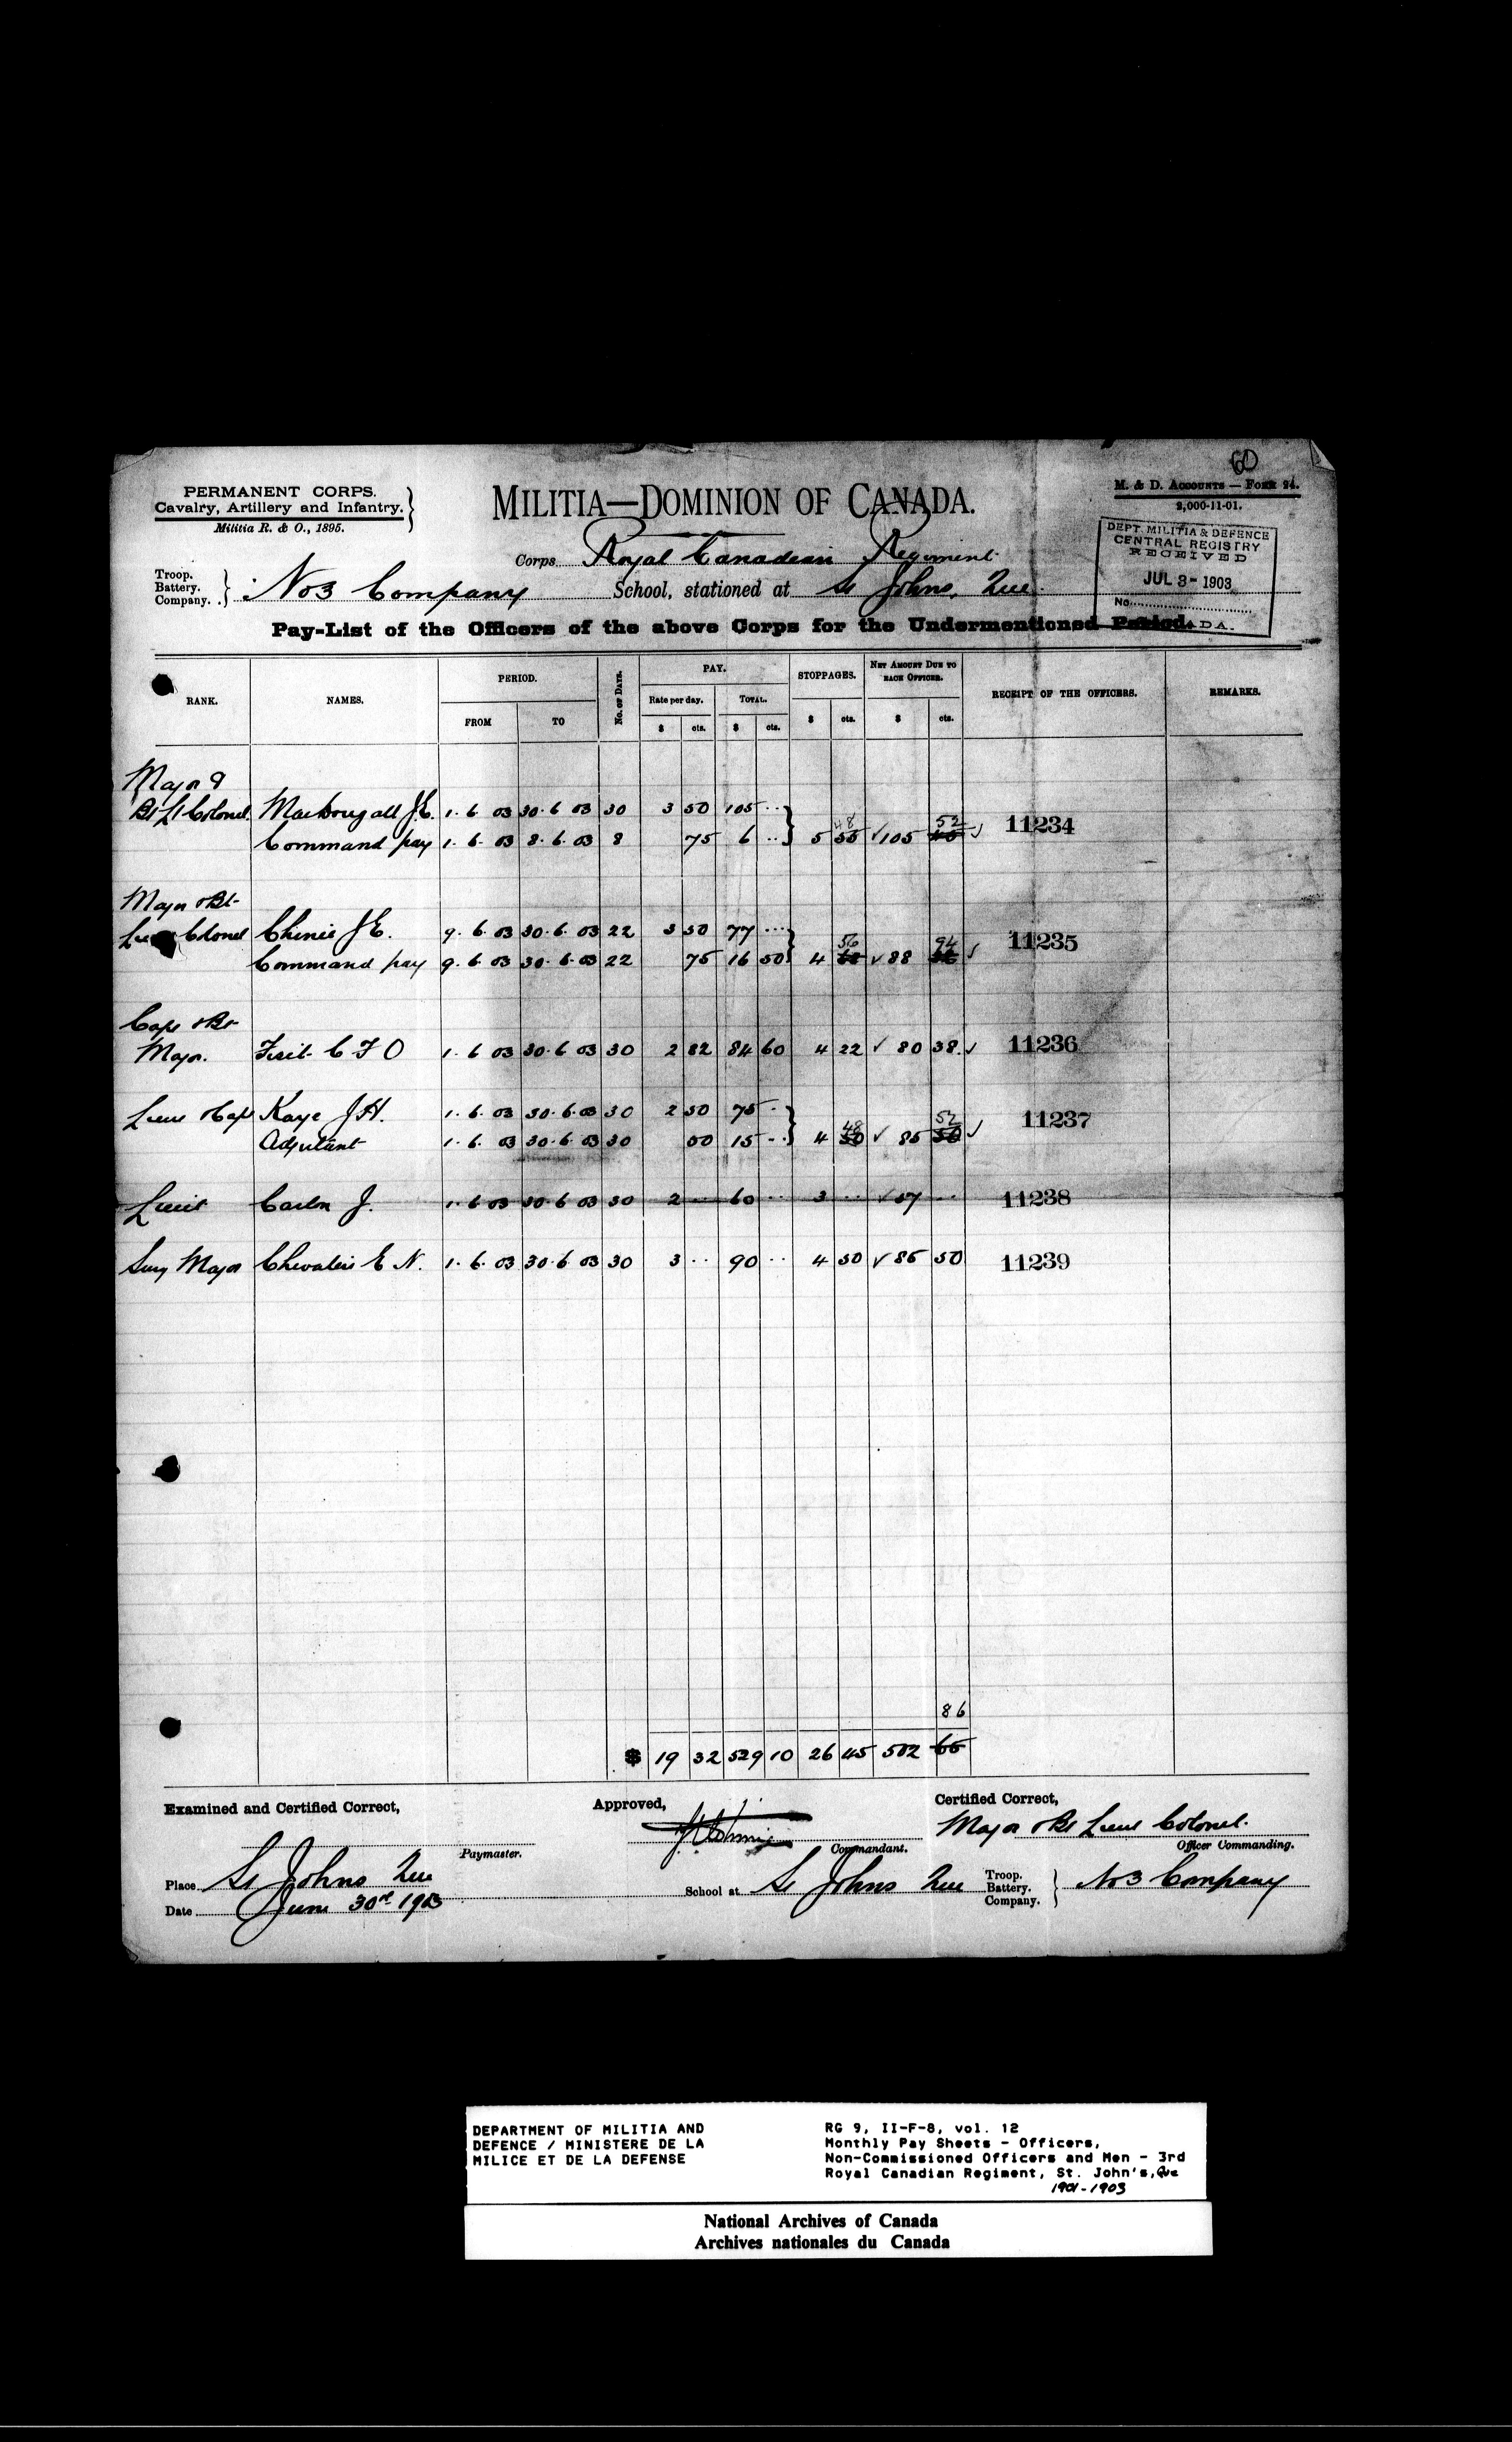 60
PERMANENT CORPS.
Cavalry, Artillery and Infantry.
Militia R. & O., 1895.
MILITIA—DOMINION OF CANADA.
M. & D. ACCOUNTS — FORM 24.
2,000-11-01.
Corps Royal Canadian Regiment
DEPT. MILITIA & DEFENCE
CENTRAL REGISTRY
RECEIVED
JUL 3- 1903
No.
Troop.
Battery.
Company. No 3 Company School, stationed at St Johns, Que.
Pay-List of the Officers of the above Corps for the Undermentioned Period.
RANK. NAMES. PERIOD. No. of Days. PAY. STOPPAGES. NET AMOUNT DUE TO EACH OFFICER. RECEIPT OF THE OFFICERS. REMARKS.
FROM TO Rate per day. TOTAL.
$ cts. $ cts. $ cts. $ cts.
Major &
Bt Lt Colonel MacDougall J.C. 1. 6 03 30. 6 03 30 3 50 105 ..
Command pay 1. 6. 03 8. 6. 03 8 75 6 .. 5 48 105 52 11234
Major & Bt
Lieut Colonel Chinic J E. 9. 6. 03 30. 6. 03 22 3 50 77 ...
Command pay 9. 6. 03 30. 6. 03 22 75 16 50 4 56 88 94 11235
Capt & Bt
Major. Fiset C F O 1. 6 03 30. 6 03 30 2 82 84 60 4 22 80 38 11236
Lieut & Capt Kaye J H. 1. 6. 03 30. 6. 03 30 2 50 75 .
Adjutant 1. 6. 03 30. 6. 03 30 50 15 .. 4 48 85 52 11237
Lieut Carlon J. 1. 6 03 30. 6 03 30 2 ... 60 ... 3 ... 57 ... 11238
Surg Major Chevalier E N. 1. 6. 03 30. 6 03 30 3 .. 90 .. 4 50 85 50 11239
86
$ 19 32 529 10 26 45 502 65
Examined and Certified Correct, Approved, Certified Correct,
Major & Bt Lieut Colonel.
Paymaster. Commandant. Officer Commanding.
Place St Johns Que School at St Johns Que Troop.
Battery.
Company. No 3 Company
Date June 30th 1903
DEPARTMENT OF MILITIA AND
DEFENCE / MINISTERE DE LA
MILICE ET DE LA DEFENSE
RG 9, II-F-8, vol. 12
Monthly Pay Sheets - Officers,
Non-Commissioned Officers and Men - 3rd
Royal Canadian Regiment, St. John's, Que
1901-1903
National Archives of Canada
Archives nationales du Canada